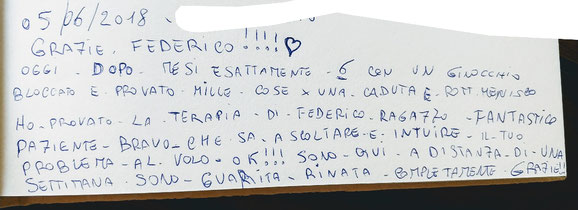 05/06/2018
GRAZIE. FEDERICO!!!!♡
OGGI - DOPO - MESI ESATTAMENTE - 6 CON UN GINOCCHIO
BLOCCATO E PROVATO MILLE - COSE X UNA - CADUTA E - ROTT. MENISCO
HO - PROVATO - LA - TERAPIA - DI - FEDERICO - RAGAZZO - FANTASTICO
PAZIENTE - BRAVO - CHE SA - ASCOLTARE - E - INTUIRE - IL - TUO
PROBLEMA - AL - VOLO - OK!!! SONO - QUI - A DISTANZA - DI - UNA
SETTIMANA - SONO - GUARITA - RINATA - COMPLETAMENTE - GRAZIE!!